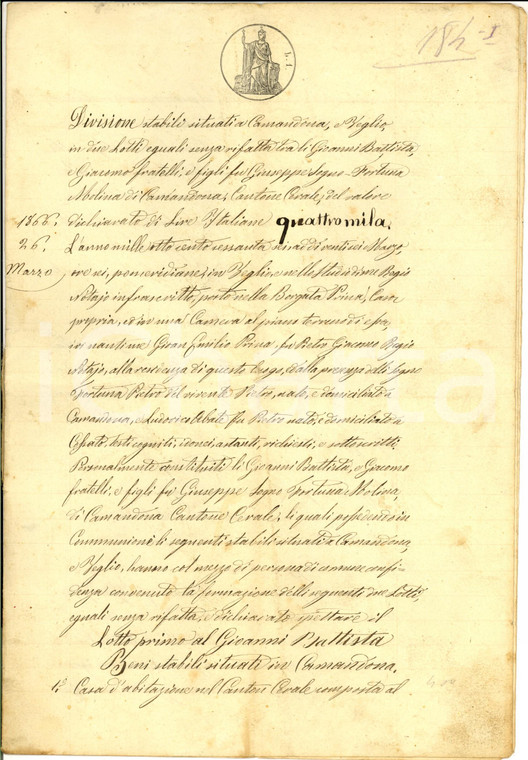 184-I
Divisione stabili situati a Camandona, e Veglio,
in due Lotti eguali senza rifatta tra li Gioanni Battista,
e Giacomo fratelli, e figli fu Giuseppe Segno-Fortuna
Molina di Camandona, Cantone Cerale, del valore
dichiarato di Lire Italiane quattro mila.
1866.
26.
Marzo
L'anno mille otto cento sessanta sei, ad di venti sei Marzo,
ore sei, pomeridiane, in Veglio, e nello studio d'me Regio
Notajo infrascritto, posto nella Borgata Prina, Casa
propria, ed in una Camera al piano terreno di essa,
ivi nanti me Gioan Emilio Prina, fu Pietro Giacomo Regio
Notajo, alla residenza di questo luogo, ed alla presenza delli Segno
Fortuna Pietro del vivente Pietro, nato, e domiciliato a
Camandona, e Ludovico Debate fu Pietro nato, e domiciliato a
Cossato, testi cogniti, idonei, astanti, richiesti, e sottoscritti.
Personalmente constituiti li Gioanni Battista, e Giacomo
fratelli, e figli fu Giuseppe Segno Fortuna Molina,
di Camandona Cantone Cerale, li quali possedendo in
Communione li seguenti stabili situati a Camandona,
e Veglio, hanno col mezzo di persona di comune confi-
denza convenuto la formazione delli seguenti due Lotti,
eguali senza rifatta, e dichiarato spettare il
Lotto primo al Gioanni Battista
Beni stabili situati in Camandona.
1° Casa d'abitazione nel Canton Cerale composta al